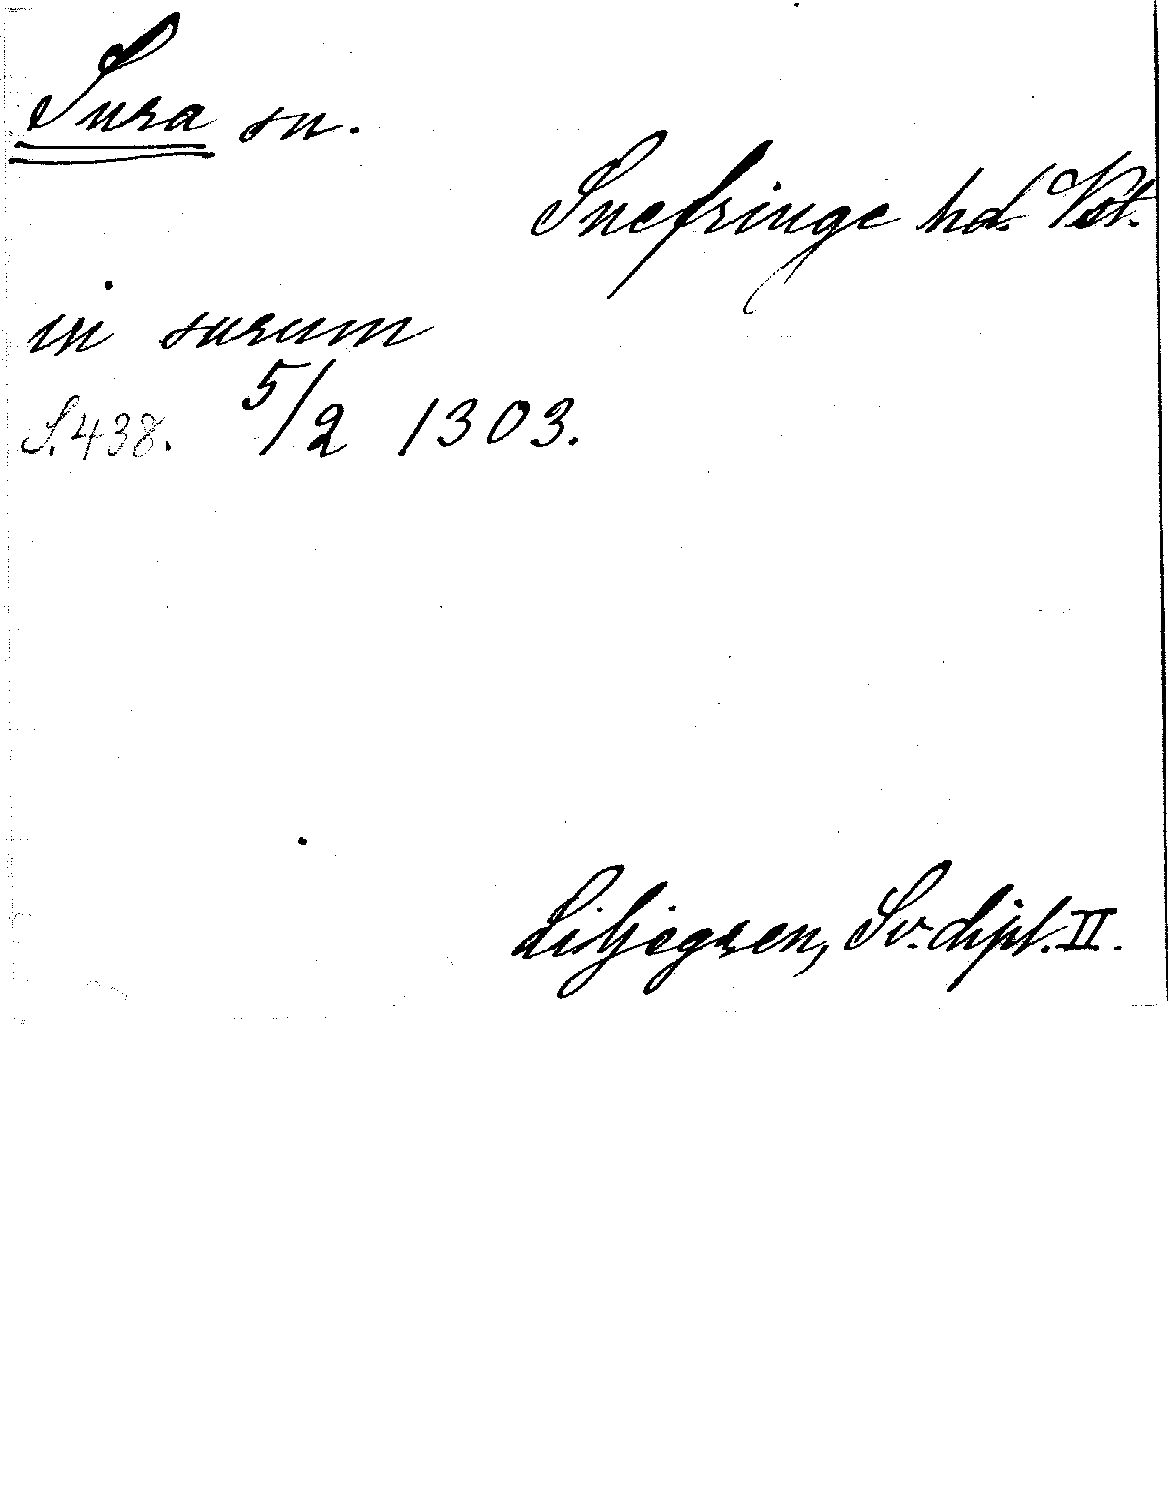 Sura sn.
Snefringe hd. Vst.
in surum
S. 438. 5/2 1303.
Liljegren, Sv. dipl. II.